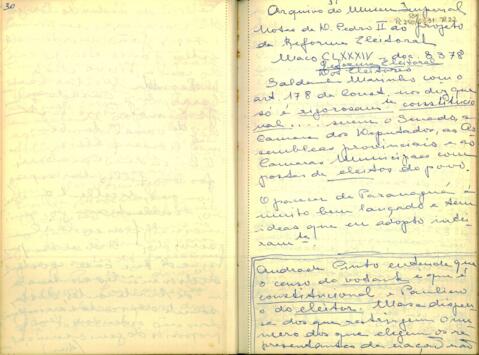 30
31
Arquivo do Museu Imperial
Notas de D. Pedro II ao projeto
da Reforma Eleitoral
Maço CLXXXIV - doc. 8378
Reforma Eleitoral
Dos Eleitores
Saldanha Marinho com o
art. 178 da Const. nos diz que
só é rigorosamte constitucio
nal .... serem o Senado, a
Camara dos Deputados, as As
sembleas provinciais e as
Camaras Municipaes com
postas de eleitos do povo.
O parecer de Paranaguá é
muito bem lançado e tem
ideas que eu adopto intei
ramte.
Andrade Pinto entende que
o censo do votante é que é
constitucional e Paulino
o do eleitor. Mas a dispen
sa dos que restringem o nu
mero dos que elegem os re
presentantes da nação não